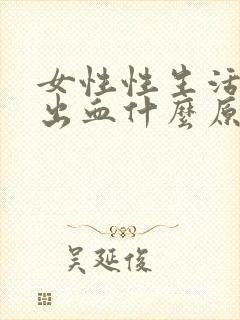 女性性生活
出血什麼原
吴延俊